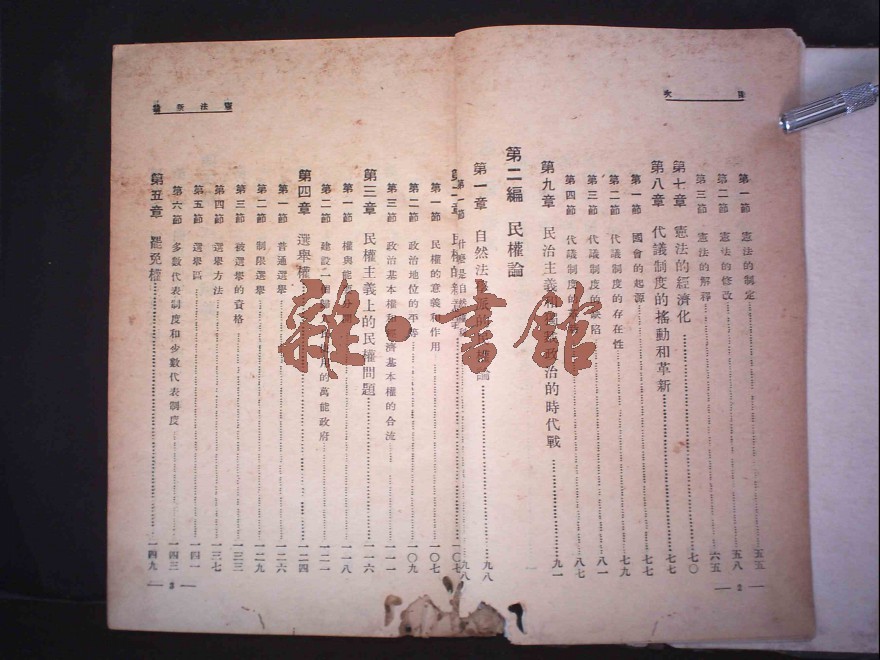 目次
第一節 憲法的制定 五五
第二節 憲法的修改 五八
第三節 憲法的解釋 六五
第七章 憲法的經濟化 七〇
第八章 代議制度的搖動和革新 七七
第一節 國會的起源 七七
第二節 代議制度的存在性 七九
第三節 代議制度的缺陷 八一
第四節 代議制度的 八七
第九章 民治主義和 政治的時代戰 九一
第二編 民權論
第一章 自然法 派的民權論 九八
第一節 什麼是自 九八
第二章 民權的新 一〇七
第一節 民權的意義和作用 一〇七
第二節 政治地位的平等 一〇九
第三節 政治基本權和經濟基本權的合流 一一一
第三章 民權主義上的民權問題 一一六
第一節 權與能 一一八
第二節 建設一個 的萬能政府 一二一
第四章 選舉權 一二四
第一節 普通選舉 一二六
第二節 制限選舉 一二九
第三節 被選舉的資格 一三三
第四節 選舉方法 一三七
第五節 選舉區 一四一
第六節 多數代表制度和少數代表制度 一四三
第五章 罷免權 一四九
— 2 —
憲法 論
— 3 —
雜·書館